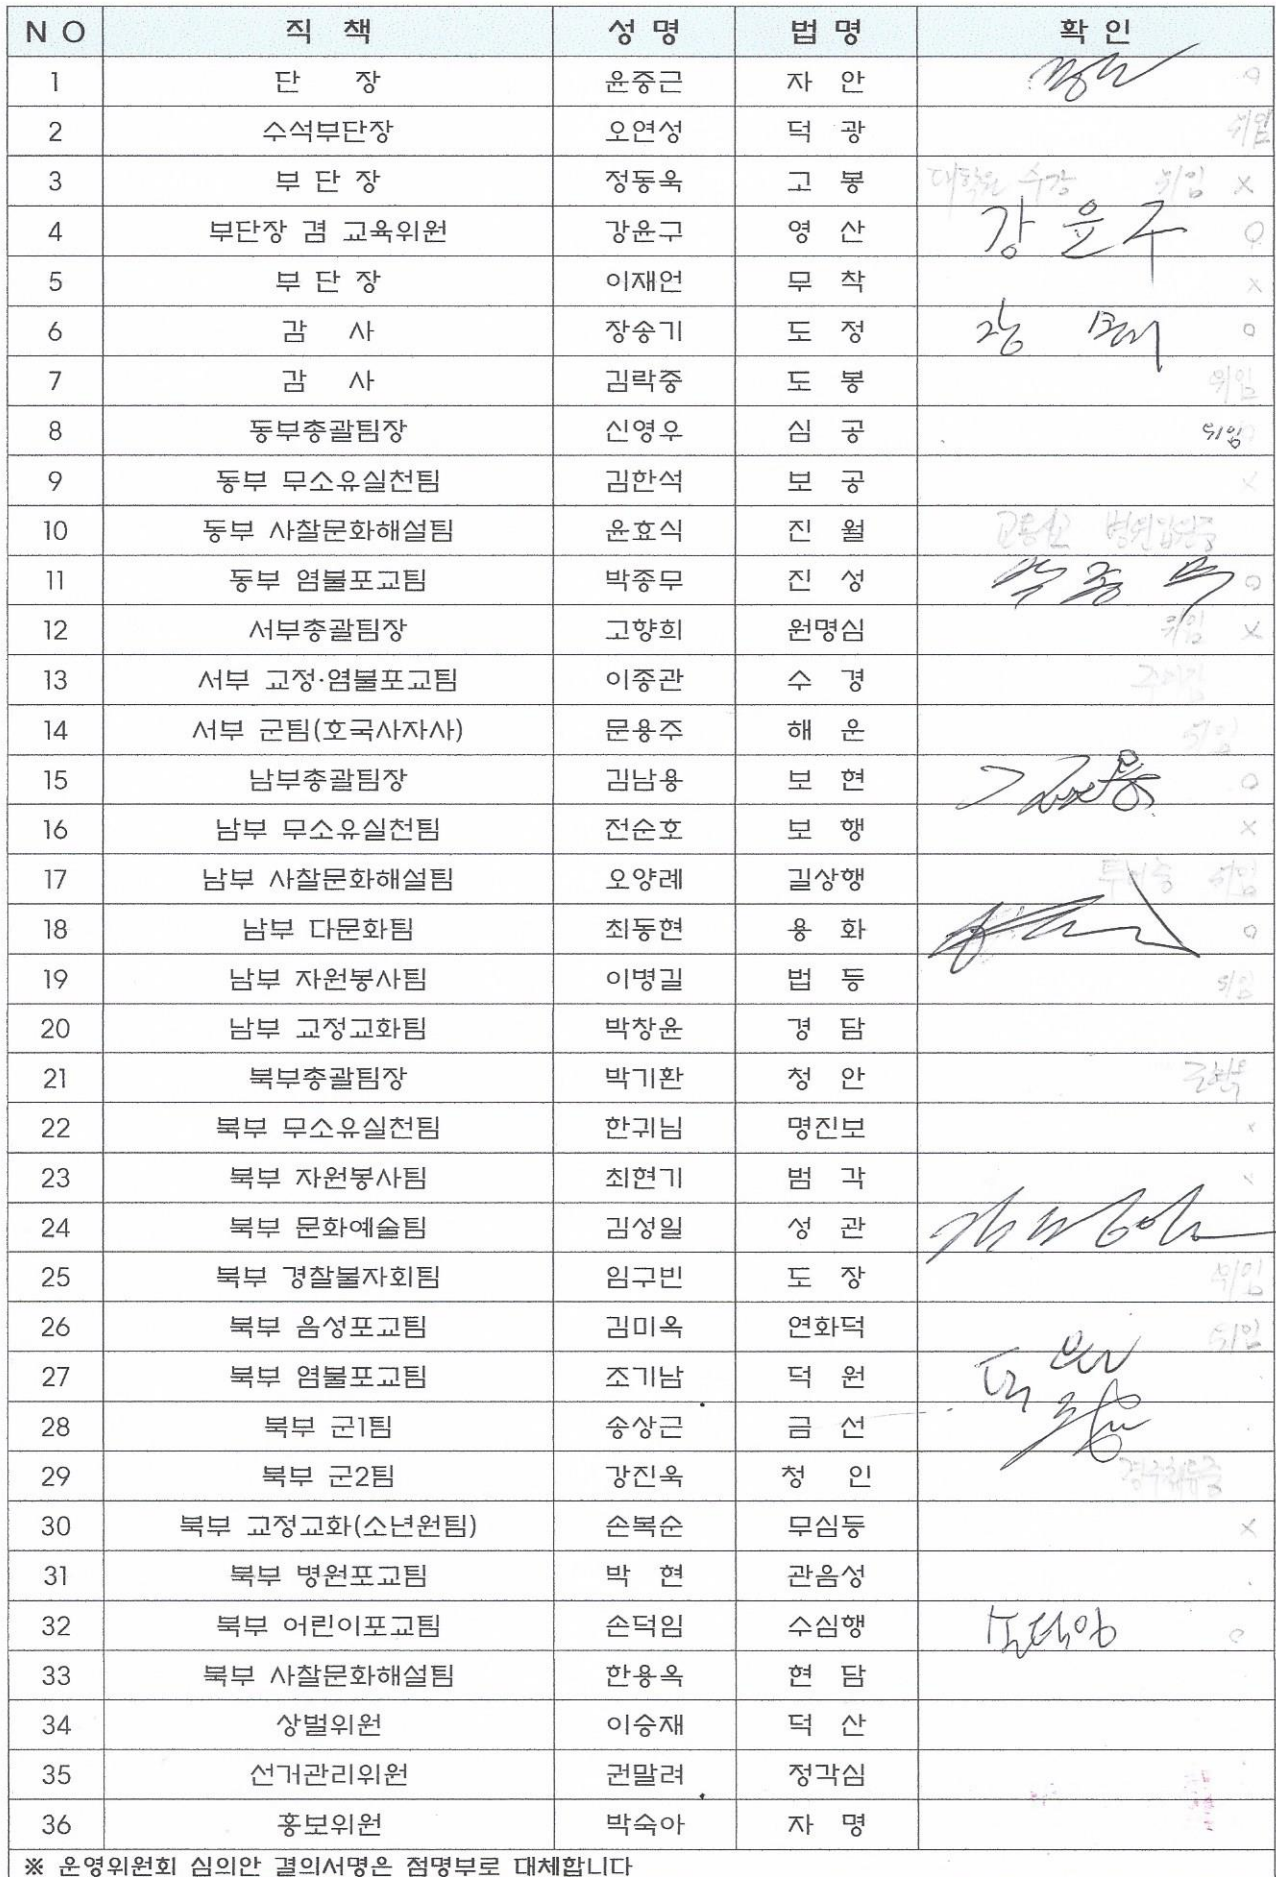 N O 직 책 성 명 법 명 확 인
1 단 장 윤중근 자 안 ○
2 수석부단장 오연성 덕 광 위임
3 부 단 장 정동욱 고 봉 대학원 수강 위임 ×
4 부단장 겸 교육위원 강윤구 영 산 강 윤 구 ○
5 부 단 장 이재언 무 착 ×
6 감 사 장송기 도 정 ○
7 감 사 김락중 도 봉 위임
8 동부총괄팀장 신영우 심 공 위임
9 동부 무소유실천팀 김한석 보 공 ×
10 동부 사찰문화해설팀 윤효식 진 월
11 동부 염불포교팀 박종무 진 성 박 종 무 ○
12 서부총괄팀장 고향희 원명심 위임 ×
13 서부 교정·염불포교팀 이종관 수 경
14 서부 군팀(호국사자사) 문용주 해 운 위임
15 남부총괄팀장 김남용 보 현 ○
16 남부 무소유실천팀 전순호 보 행 ×
17 남부 사찰문화해설팀 오양례 길상행 위임
18 남부 다문화팀 최동현 용 화 ○
19 남부 자원봉사팀 이병길 법 등 위임
20 남부 교정교화팀 박창윤 경 담
21 북부총괄팀장 박기환 청 안
22 북부 무소유실천팀 한귀님 명진보 ×
23 북부 자원봉사팀 최현기 범 각
24 북부 문화예술팀 김성일 성 관
25 북부 경찰불자회팀 임구빈 도 장 위임
26 북부 음성포교팀 김미옥 연화덕 위임
27 북부 염불포교팀 조기남 덕 원 덕 원
28 북부 군1팀 송상근 금 선
29 북부 군2팀 강진욱 청 인
30 북부 교정교화(소년원팀) 손복순 무심등 ×
31 북부 병원포교팀 박 현 관음성
32 북부 어린이포교팀 손덕임 수심행 손덕임 ○
33 북부 사찰문화해설팀 한용옥 현 담
34 상벌위원 이승재 덕 산
35 선거관리위원 권말려 정각심
36 홍보위원 박숙아 자 명
※ 운영위원회 심의안 결의서명은 점명부로 대체합니다